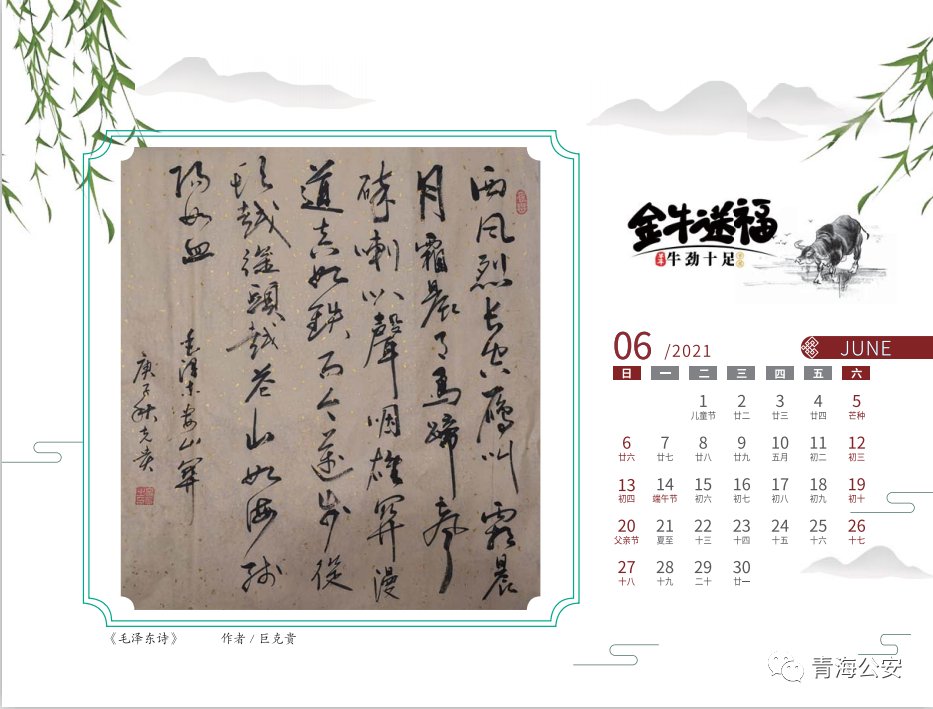 西风烈长空雁叫霜晨
月霜晨月馬蹄聲
碎喇叭聲咽雄関漫
道真如鉄而今邁步從
頭越從頭越苍山如海残
陽如血
毛澤东娄山関
庚子秋克贵
《毛泽东诗》 作者 / 巨克贵
金牛送福
牛劲十足
06 /2021 JUNE
日 一 二 三 四 五 六
1 2 3 4 5
儿童节 廿二 廿三 廿四 芒种
6 7 8 9 10 11 12
廿六 廿七 廿八 廿九 五月 初二 初三
13 14 15 16 17 18 19
初四 端午节 初六 初七 初八 初九 初十
20 21 22 23 24 25 26
父亲节 夏至 十三 十四 十五 十六 十七
27 28 29 30
十八 十九 二十 廿一
青海公安